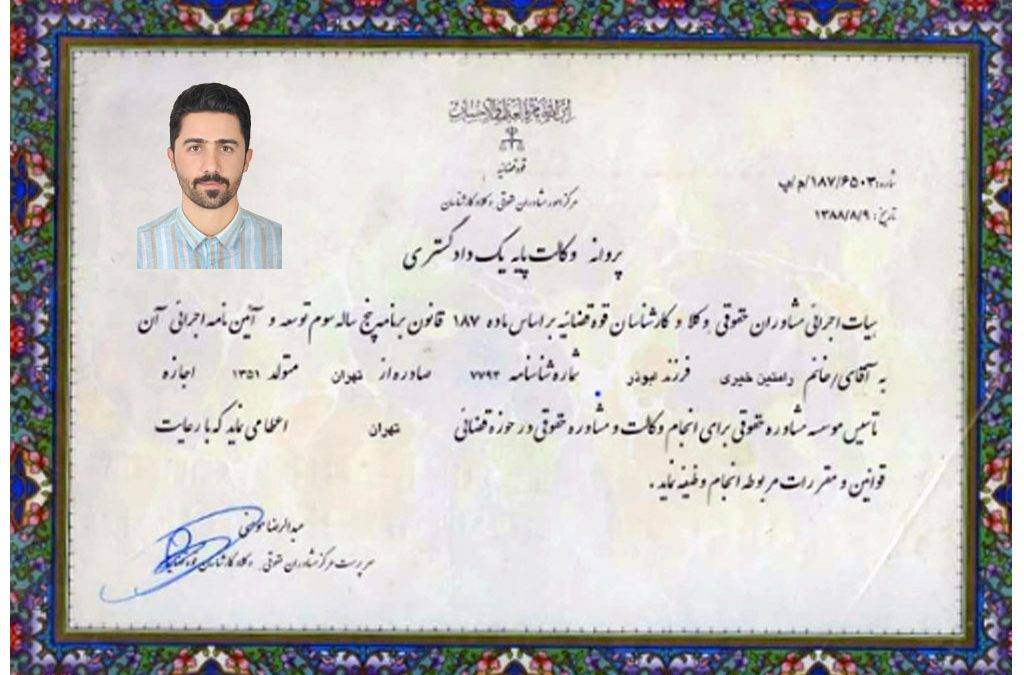 قوه قضائیه
مرکز امور مشاوران حقوقی وکلا و کارشناسان
شماره: ۱۸۷/۶۵۰۳/م/پ
تاریخ: ۱۳۸۸/۸/۹
پروانه وکالت پایه یک دادگستری
هیات اجرائی مشاوران حقوقی وکلا و کارشناسان قوه قضائیه بر اساس ماده ۱۸۷ قانون برنامه پنج ساله سوم توسعه و آئین نامه اجرائی آن
به آقای/خانم رامتین خیری فرزند ابوذر شماره شناسنامه ۷۷۹۲ صادره از تهران متولد ۱۳۵۱ اجازه
تاسیس موسسه مشاوره حقوقی برای انجام وکالت و مشاوره حقوقی در حوزه قضائی تهران اعطا می نماید که با رعایت
قوانین و مقررات مربوطه انجام وظیفه نماید.
سرپرست مرکز مشاوران حقوقی وکلا و کارشناسان قوه قضائیه